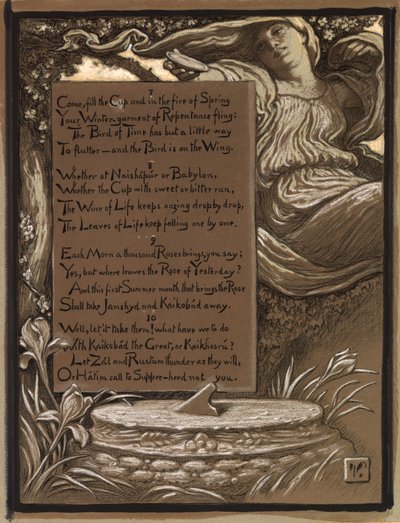 7
Come, fill the Cup and in the fire of Spring
Your Winter-garment of Repentance fling:
The Bird of Time has but a little way
To flutter—and the Bird is on the Wing.
8
Whether at Naishápúr or Babylon,
Whether the Cup with sweet or bitter run,
The Wine of Life keeps oozing drop by drop,
The Leaves of Life keep falling one by one.
9
Each Morn a thousand Roses brings, you say;
Yes, but where leaves the Rose of Yesterday?
And this first Summer month that brings the Rose
Shall take Jamshyd and Kaikobád away.
10
Well, let it take them! what have we to do
With Kaikobád the Great, or Kaikhosrú?
Let Zál and Rustum thunder as they will,
Or Hátim call to Supper—heed not you.